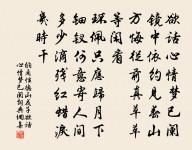 欲話心情夢已闌
鏡中依約見春山
方悔從前真草草
等閑看
環佩只應歸月下
鈿釵何意寄人間
多少滴殘紅蠟淚
幾時干
納蘭性德山花子欲話
心情夢已闌